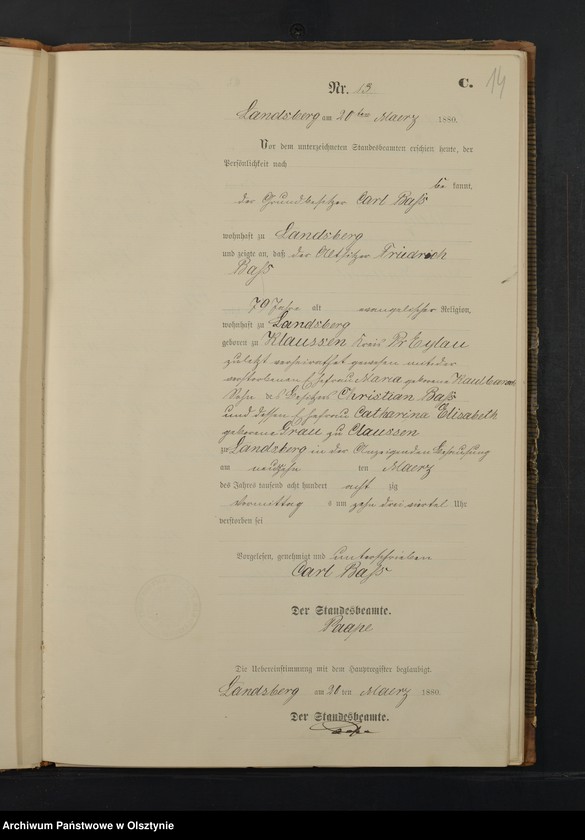 C.
14
Nr. 13
Landsberg am 20ten Maerz 1880.
Vor dem unterzeichneten Standesbeamten erschien heute, der
Persönlichkeit nach
be kannt,
der Grundbesitzer Carl Baß
wohnhaft zu Landsberg
und zeigte an, daß der Altsitzer Friedrich
Baß
70 Jahre alt evangelischer Religion,
wohnhaft zu Landsberg
geboren zu Klaussen Kreis Pr Eylau
zuletzt verheirathet gewesen mit der
verstorbenen Ehefrau Maria geborene
Sohn des Besitzers Christian Baß
und dessen Ehefrau Catharina Elisabeth
geborene Grau zu Claussen
zu Landsberg in des Anzeigenden Behausung
am neunzehn ten Maerz
des Jahres tausend acht hundert acht zig
Vormittag s um zehn drei viertel Uhr
verstorben sei
Vorgelesen, genehmigt und unterschrieben
Carl Baß
Der Standesbeamte.
Paape
Die Uebereinstimmung mit dem Hauptregister beglaubigt.
Landsberg am 20 ten Maerz 1880.
Der Standesbeamte.
Paape
Archiwum Państwowe w Olsztynie